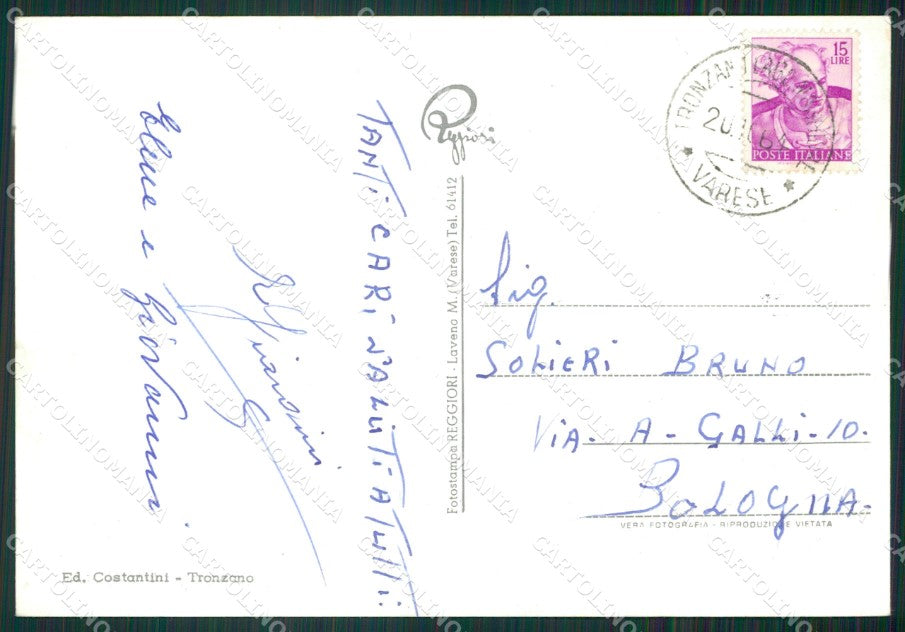 15
LIRE
POSTE ITALIANE
VARESE
Reggiori
TANTi CARi SALUTi A TUTTi
Elene e Giovanni
Ed. Costantini - Tronzano
Fotostampa REGGIORI - Laveno M. (Varese) Tel. 61412
Sig.
SOLiERi BRUNO
ViA - A - GALLi - 10.
BOLOGNA.
VERA FOTOGRAFIA - RIPRODUZIONE VIETATA
CARTOLINOMANIA